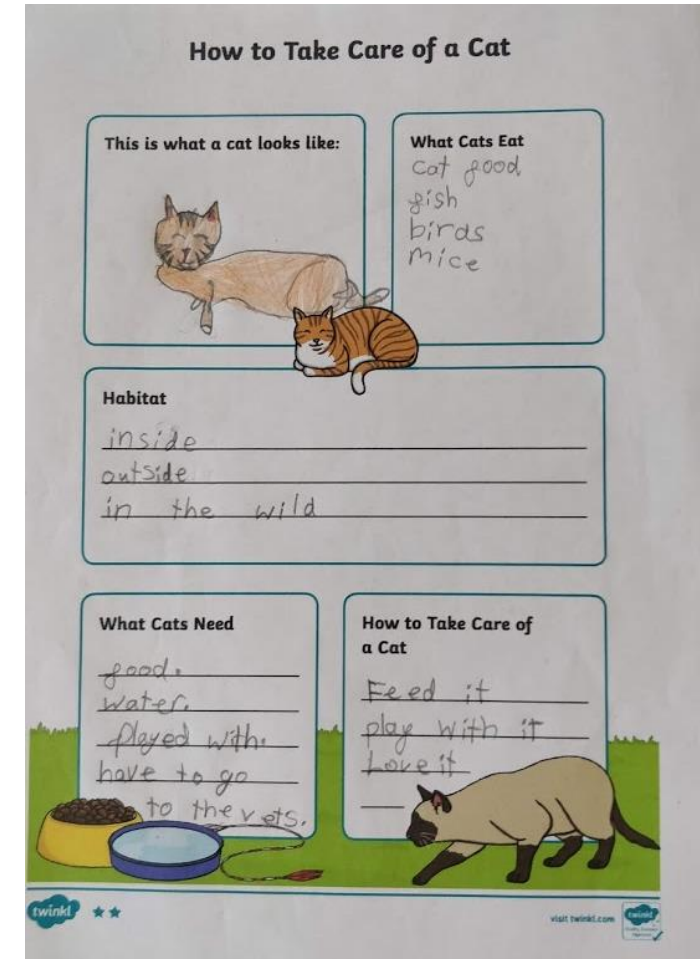 How to Take Care of a Cat
This is what a cat looks like:
What Cats Eat
cat food
fish
birds
mice
Habitat
inside
outside
in the wild
What Cats Need
food.
water.
played with.
have to go
to the vets.
How to Take Care of
a Cat
Feed it
play with it
Love it
twinkl
visit twinkl.com
twinkl